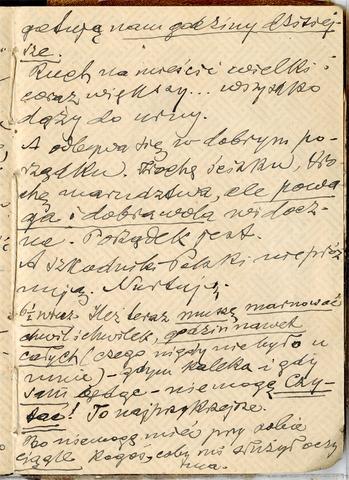 gotują nam godziny dzisiej-
sze.
Ruch na mieście wielki i
coraz większy... wszystko
dąży do urny.
A odbywa się w dobrym po-
rządku. Trochę ścisku, tro-
chę marudztwa, ale powa-
ga i dobra wola widocz-
ne. Porządek jest.
A szkodniki Polski nie próż-
nują. Nurtują
Ileż teraz muszę marnować
chwil chwilek, godzin nawet
całych (czego nigdy nie było u
mnie) – gdym kaleka i gdy
sam będąc – nie mogę czy-
tać! To najprzykrzejsze.
Bo nie mogę mieć przy sobie
ciągle kogoś, coby mi służył oczy-
ma.